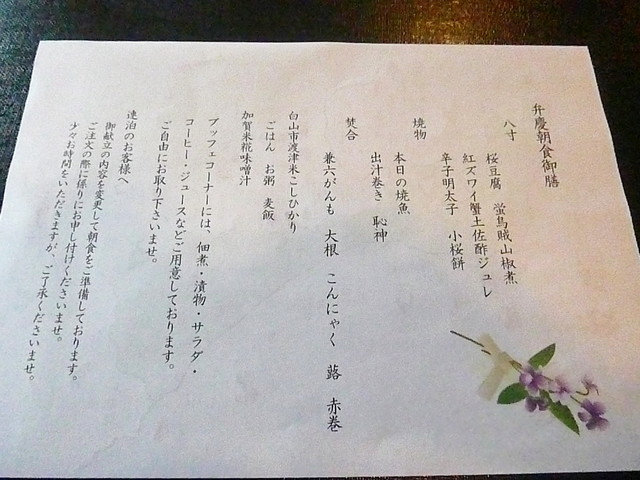 弁慶朝食御膳
八寸
桜豆腐 蛍烏賊山椒煮
紅ズワイ蟹土佐酢ジュレ
辛子明太子 小桜餅
焼物
本日の焼魚
出汁巻き 恥神
焚合
兼六がんも 大根 こんにゃく 蕗 赤巻
白山市渡津米こしひかり
ごはん お粥 麦飯
加賀米糀味噌汁
ブッフェコーナーには、佃煮・漬物・サラダ・
コーヒー・ジュースなどご用意しております。
ご自由にお取り下さいませ。
連泊のお客様へ
御献立の内容を変更して朝食をご準備しております。
ご注文の際に係りにお申し付けくださいませ。
少々お時間をいただきますが、ご了承くださいませ。